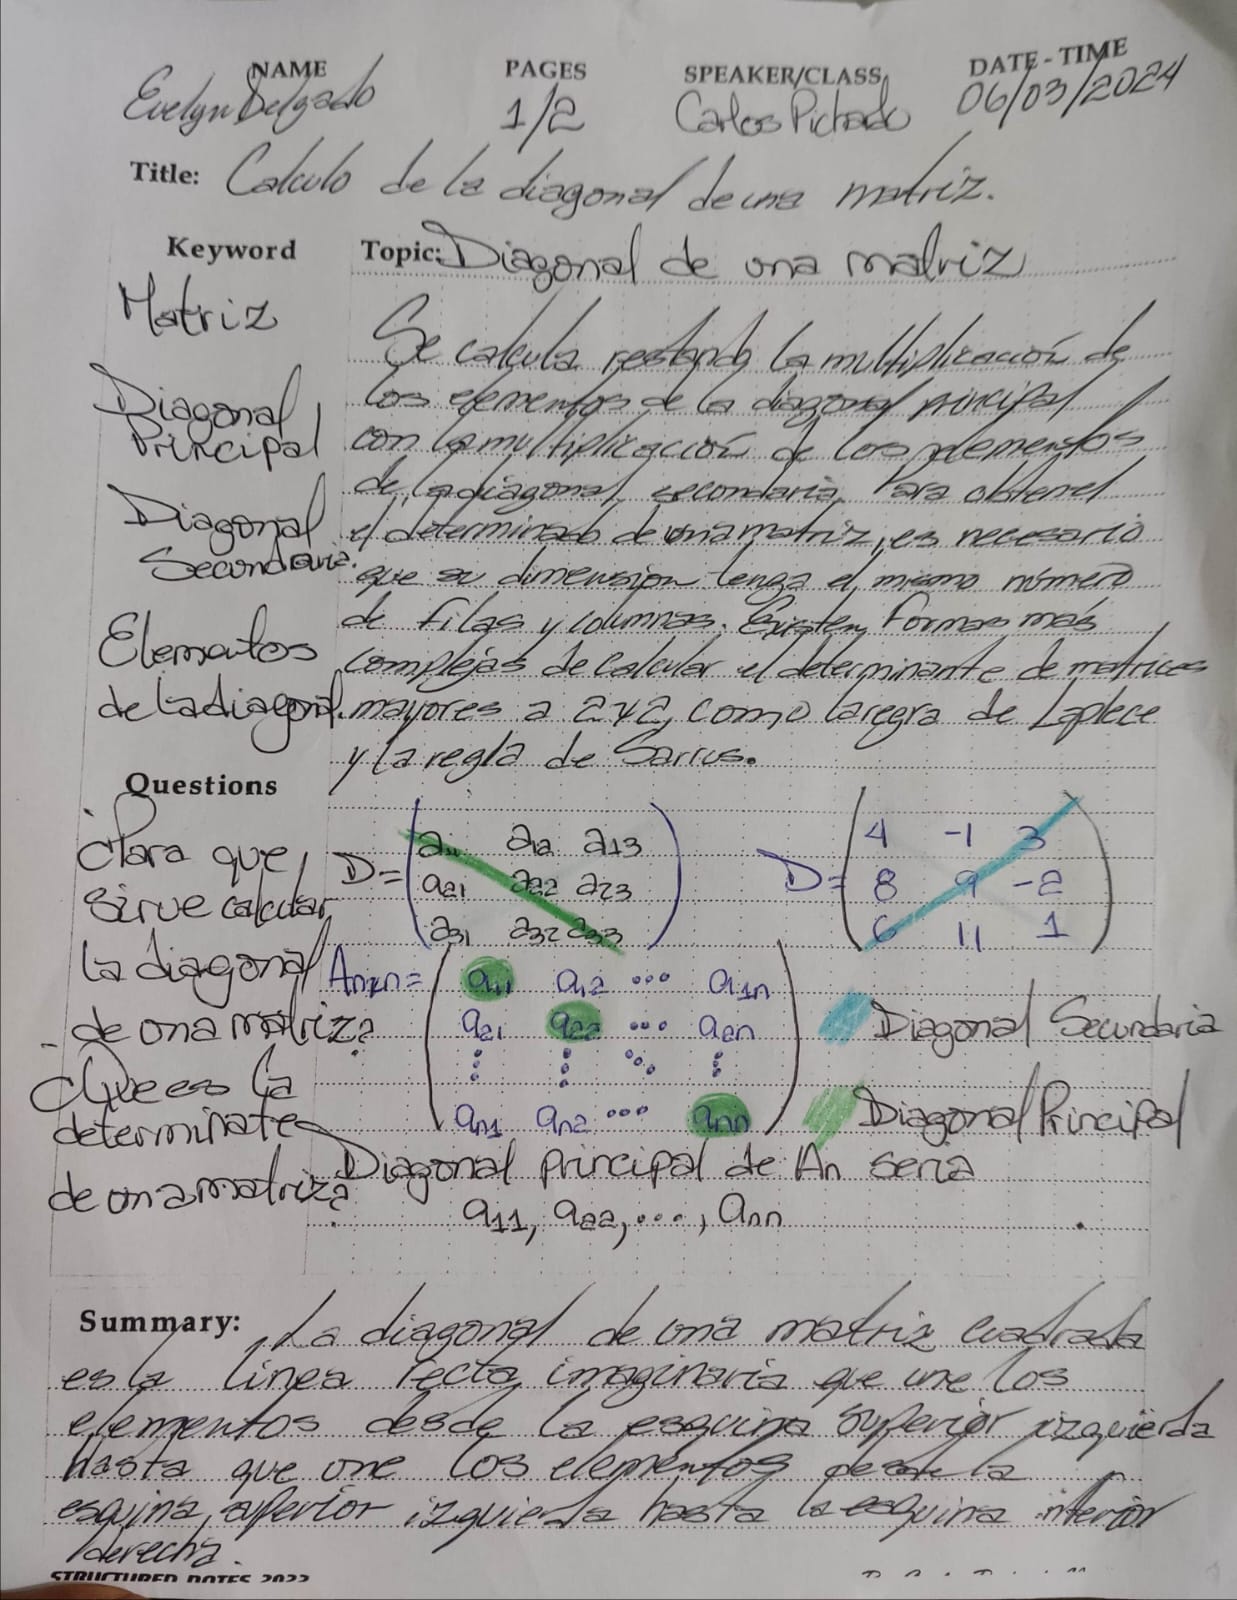 NAME PAGES SPEAKER/CLASS DATE - TIME
Evelyn Delgado 1/2 Carlos Pichado 06/03/2024
Title: Calculo de la diagonal de una matriz.
Keyword
Matriz
Diagonal
Principal
Diagonal
Secundaria.
Elementos
de la diagonal.
Topic: Diagonal de una matriz
Se calcula restando la multiplicación de
los elementos de la diagonal principal
con la multiplicación de los elementos
de la diagonal secundaria. Para obtener
el determinado de una matriz, es necesario
que su dimension tenga el mismo número
de filas y columnas. Existen formas más
complejas de calcular el determinante de matrices
mayores a 2x2, como la regra de Laplece
y la regla de Sarrus.
Questions
¿Para que
sirve calcular
la diagonal
- de una matriz?
¿Que es la
determinate
de una matriz?
D= a11 a12 a13
a21 a22 a23
a31 a32 a33
D= 4 -1 3
8 9 -2
6 11 1
Anxn= a11 a12 ... a1n
a21 a22 ... a2n
an1 an2 ... ann
Diagonal Secundaria
Diagonal Principal
Diagonal principal de An seria
a11, a22, ..., ann
Summary: La diagonal de una matriz cuadrada
es la linea recta imaginaria que une los
elementos desde la esquina superior izquierda
hasta que une los elementos desde la
esquina superior izquierda hasta la esquina inferior
derecha.
STRUCTURED NOTES 2022